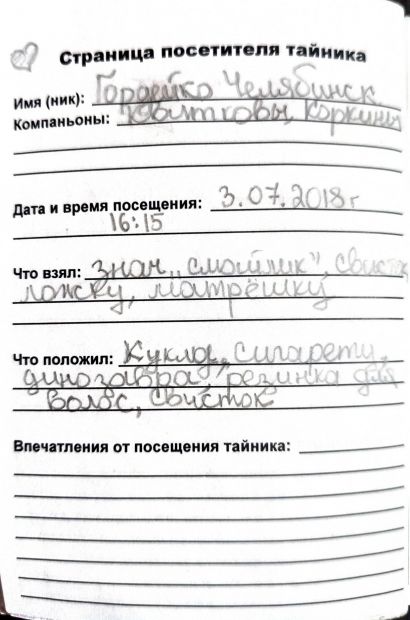 Страница посетителя тайника
Имя (ник): Гордейко Челябинск
Компаньоны: Квитковы, Коркины
Дата и время посещения: 3.07.2018г
16:15
Что взял: знач „смайлик", свисток
ложку, матрёшку
Что положил: Куклу, сигарету,
динозавра, резинка для
волос, свисток
Впечатления от посещения тайника: